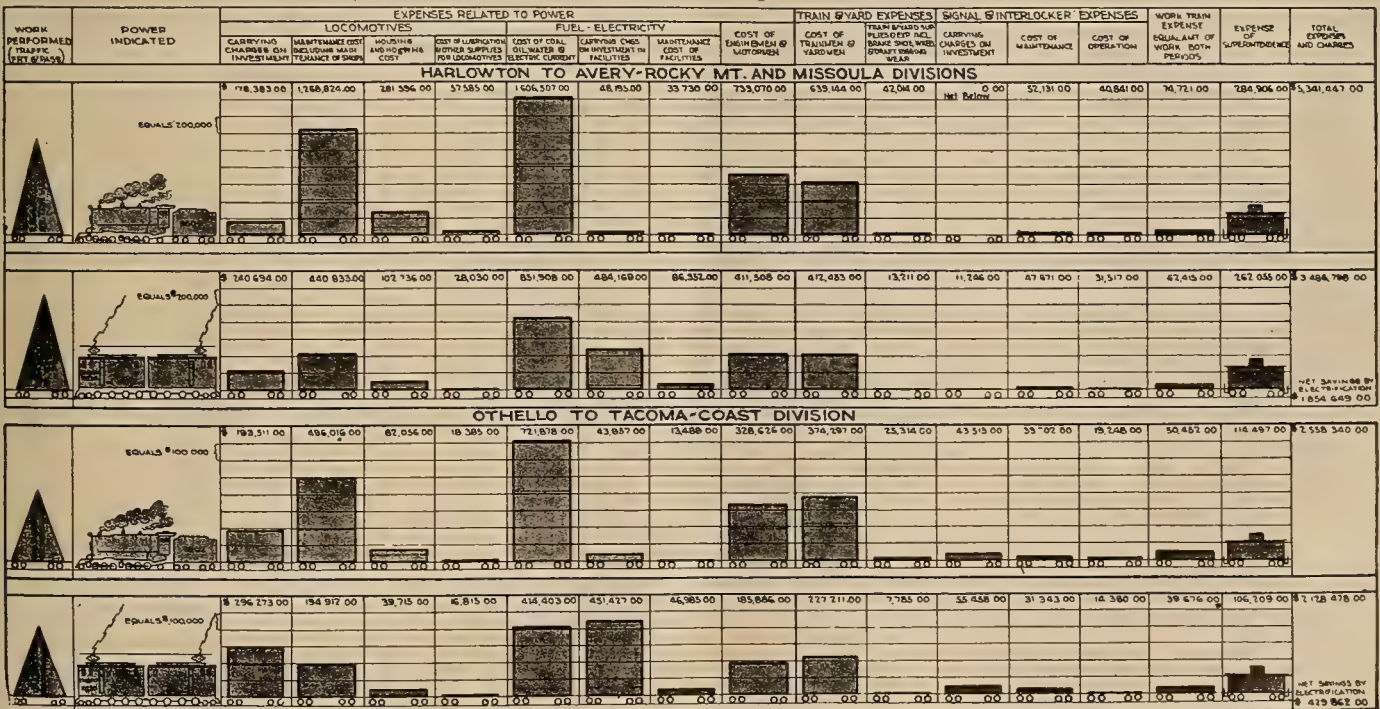 EXPENSES RELATED TO POWER
TRAIN & YARD EXPENSES
SIGNAL & INTERLOCKER EXPENSES
LOCOMOTIVES
FUEL-ELECTRICITY
WORK
PERFORMED
(TRAFFIC
FRT & PASS)
POWER
INDICATED
CARRYING
CHARGES ON
INVESTMENT
MAINTENANCE COST
INCLUDING MAIN
TENANCE OF SHOPS
HOUSING
AND HOSTLING
COST
COST OF LUBRICATION
& OTHER SUPPLIES
FOR LOCOMOTIVES
COST OF COAL
OIL, WATER &
ELECTRIC CURRENT
CARRYING CHGS
ON INVESTMENT IN
FACILITIES
MAINTENANCE
COST OF
FACILITIES
COST OF
ENGINEMEN &
MOTORMEN
COST OF
TRAINMEN &
YARDMEN
TRAIN & YARD SUP
PLIES & EXP INCL
BRAKE SHOE, WHEEL
& DRAFT RIGGING
WEAR
CARRYING
CHARGES ON
INVESTMENT
COST OF
MAINTENANCE
COST OF
OPERATION
WORK TRAIN
EXPENSE
EQUALANT OF
WORK BOTH
PERIODS
EXPENSE
OF
SUPERINTENDENCE
TOTAL
EXPENSES
AND CHARGES
HARLOWTON TO AVERY-ROCKY MT. AND MISSOULA DIVISIONS
$ 178,383 00 1,268,824 00 281 596 00 57585 00 1 606,507 00 48,195 00 33 730 00 733,070 00 639,144 00 42,014 00 0 00 52,131 00 40,841 00 74,721 00 284,906 00 $5,341,447 00
Net Below
EQUALS $200,000
$ 240 694 00 440 833 00 102 736 00 28,030 00 851,908 00 484,169 00 86,352 00 411,508 00 412,483 00 13,211 00 11,246 00 47 871 00 31,517 00 62,415 00 262 055 00 $3 486,798 00
EQUALS $200,000
NET SAVINGS BY
ELECTRIFICATION
$ 1 854 649 00
OTHELLO TO TACOMA-COAST DIVISION
$ 193,511 00 486,016 00 82,056 00 18 385 00 721,878 00 43,857 00 13,488 00 328,626 00 374,297 00 25,314 00 43 513 00 19,248 00 50,452 00 114 497 00 $2 558 340 00
EQUALS $100 000
$ 296 273 00 194 912 00 39,715 00 16,815 00 414,403 00 451,427 00 46,985 00 185,886 00 227 211 00 7,785 00 55 458 00 31 343 00 14 380 00 39 676 00 106,209 00 $2 128 478 00
EQUALS $100,000
NET SAVINGS BY
ELECTRIFICATION
$ 429 862 00